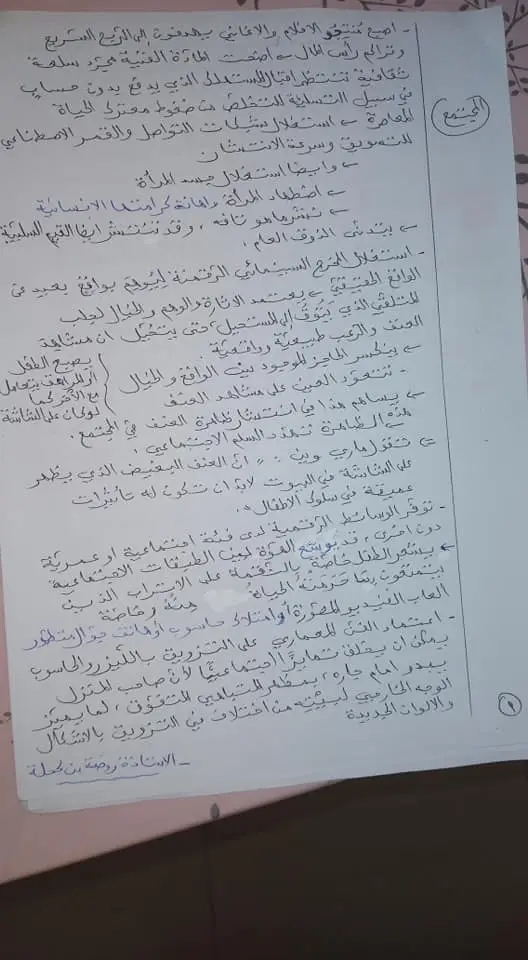 المجتمع
- أصبح مُنتِجُو الأفلام والأغاني يهدفون إلى الربح السريع
وتراكم رأس المال ← أضحت المادة الفنية مجرّد سلعة
ثقافية تنتظر إقبال المستهلك الذي يدفع بدون حساب
في سبيل التسلية للتخلص من ضغوط معترك الحياة
المعاصرة ← استغلال شبكات التواصل والقمر الاصطناعي
للتسويق وسرعة الانتشار
← وأيضا استغلال جسد المرأة
← اضطهاد المرأة وإهانة كرامتها الإنسانية
← نشر ما هو تافه، وقد تنتشر أيضا القيم السلبية
← يتدنى الذوق العام.
- استغلال المخرج السينمائي الرقمنة ليوهم بواقع بعيد عن
الواقع الحقيقي ← يعتمد الإثارة والوهم والخيال لجلب
المتلقي الذي يَتُوقُ إلى المستحيل حتى يتخيّل أن مشاهد
العنف والرعب طبيعيّة وواقعيّة.
← ينكسر الحاجز الموجود بين الواقع والخيال
- تتعوّد العين على مشاهد العنف
يصبح الطفل
أو المراهق يتعامل
مع الآخر كما
لو كان على الشاشة
← يساهم هذا في انتشار ظاهرة العنف في المجتمع.
← هذه الظاهرة تهدّد السلم الاجتماعي.
← تقول ماري وين: "إنّ العنف البغيض الذي يظهر
على الشاشة في البيوت لابدّ أن تكون له تأثيرات
عميقة في سلوك الأطفال".
- توفّر الوسائط الرقمية لدى فئة اجتماعية أو عمرية
دون أخرى، قد يوسّع الهُوّة بين الطبقات الاجتماعية
← يشعر الطفل خاصّة بالنقمة على الأتراب الذين
يتمتّعون بما حَرَمَتْهُ الحياة منه وخاصّة
ألعاب الفيديو المطوّرة أو امتلاك حاسوب أو هاتف جوّال متطوّر
- اعتماد الفنّ المعماري على التزويق بالليزر والحاسوب
يمكن أن يخلق تمايزًا اجتماعيًّا لأنّ صاحب المنزل
يبدو أمام جاره، بمظهر المتباهي المتفوّق، لما يميّز
الوجه الخارجي لبيْته من اختلاف في التزويق بالأشكال
والألوان الجديدة
- الأستاذة روضة بن